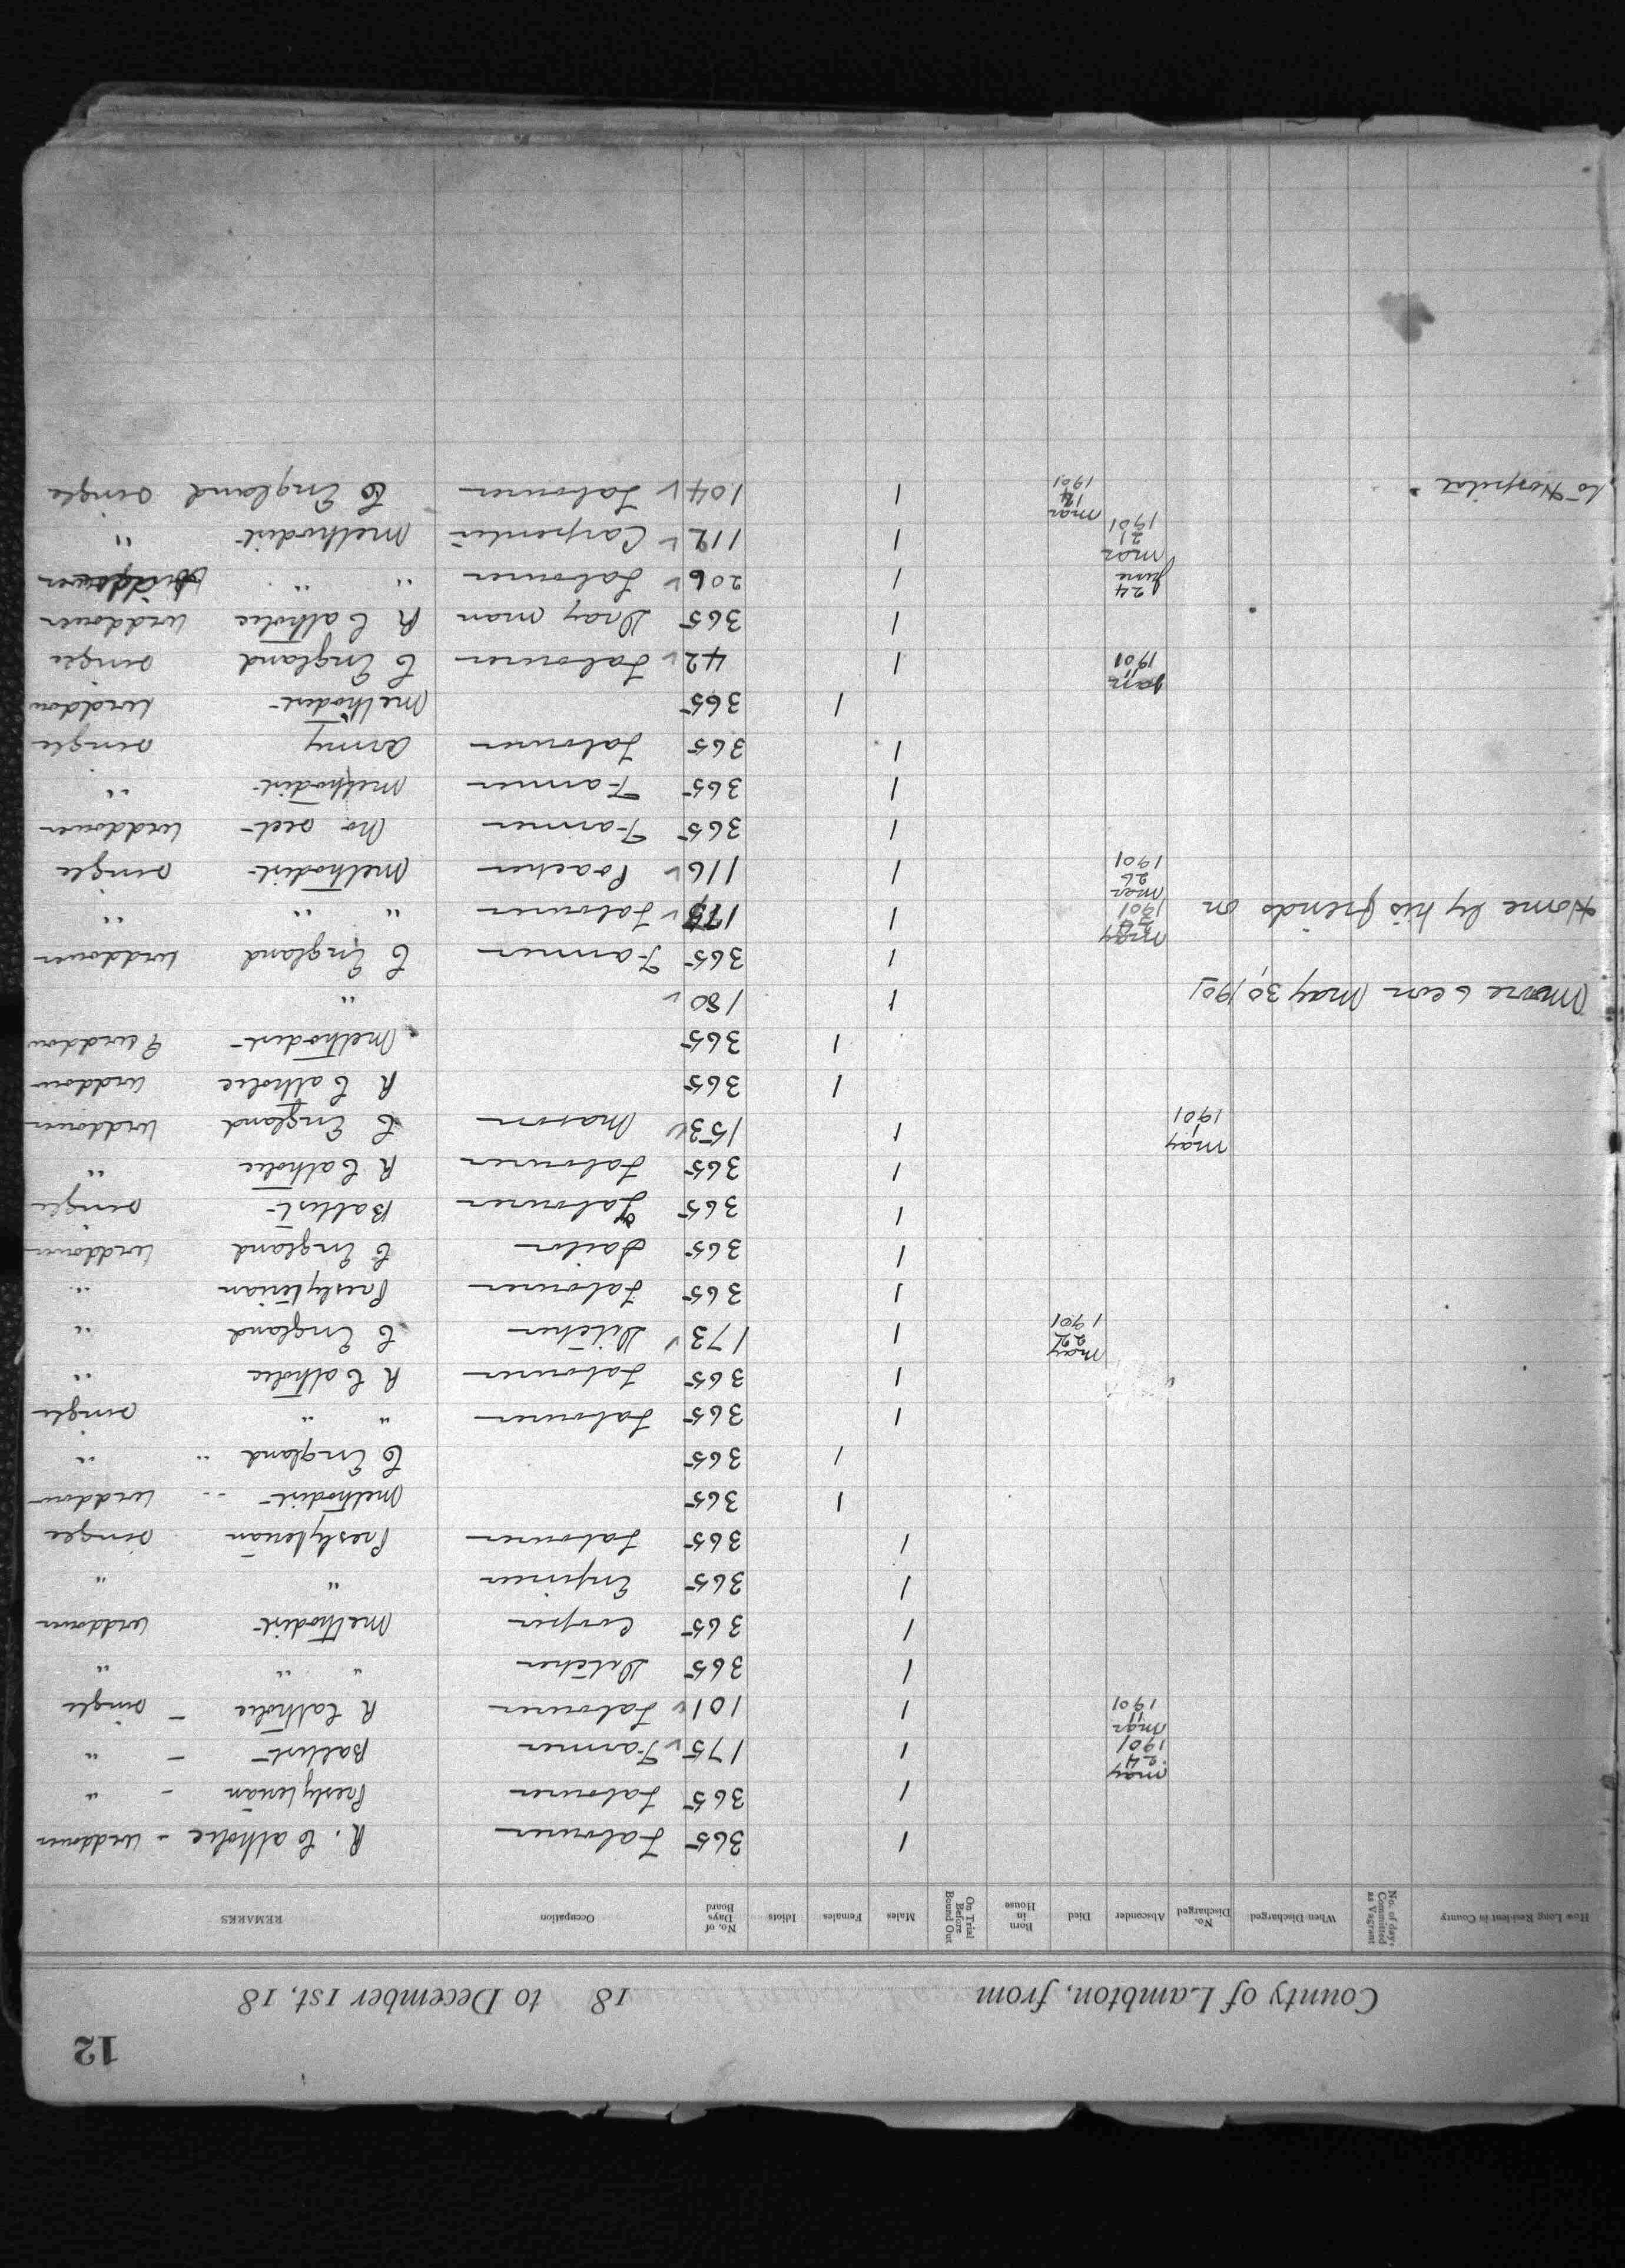 12
County of Lambton, from 18 to December 1st, 18
How Long Resident in County No. of days Committed as Vagrant When Discharged No. Discharged Absconder Died Born in House On Trial Before Bound Out Males Females Idiots No. of Days Board Occupation REMARKS
1 365 Labourer R. Catholic - Widower
1 365 Labourer Presbyterian - "
May 24 1901 1 175 Farmer Baptist - "
Mar 11 1901 1 101 Labourer R Catholic - Single
1 365 Ditcher " " "
1 365 Cooper Methodist Widower
1 365 Engineer " "
1 365 Labourer Presbyterian Single
1 365 Methodist Widow
1 365 C England "
1 365 Labourer " " Single
1 365 Labourer R Catholic "
May 22 1901 1 173 Ditcher C England "
1 365 Labourer Presbyterian "
1 365 Sailor C England Widower
1 365 Labourer Baptist Single
1 365 Labourer R Catholic "
May 1 1901 1 153 Mason C England Widower
1 365 R Catholic Widow
1 365 Methodist Widow
May 30, 1901 1 180 "
1 365 Farmer C England Widower
Home by his friends on May 1901 1 Labourer " " "
Mar 26 1901 1 116 Poacher Methodist Single
1 365 Farmer No sect Widower
1 365 Farmer Methodist "
1 365 Labourer Army Single
1 365 Methodist Widow
Jan 11 1901 1 42 Labourer C England Single
1 365 Dray man R Catholic Widower
June 24 1 206 Labourer " " Widower
Mar 21 1901 1 112 Carpenter Methodist "
to Hospital Mar 14 1901 1 104 Labourer C England Single